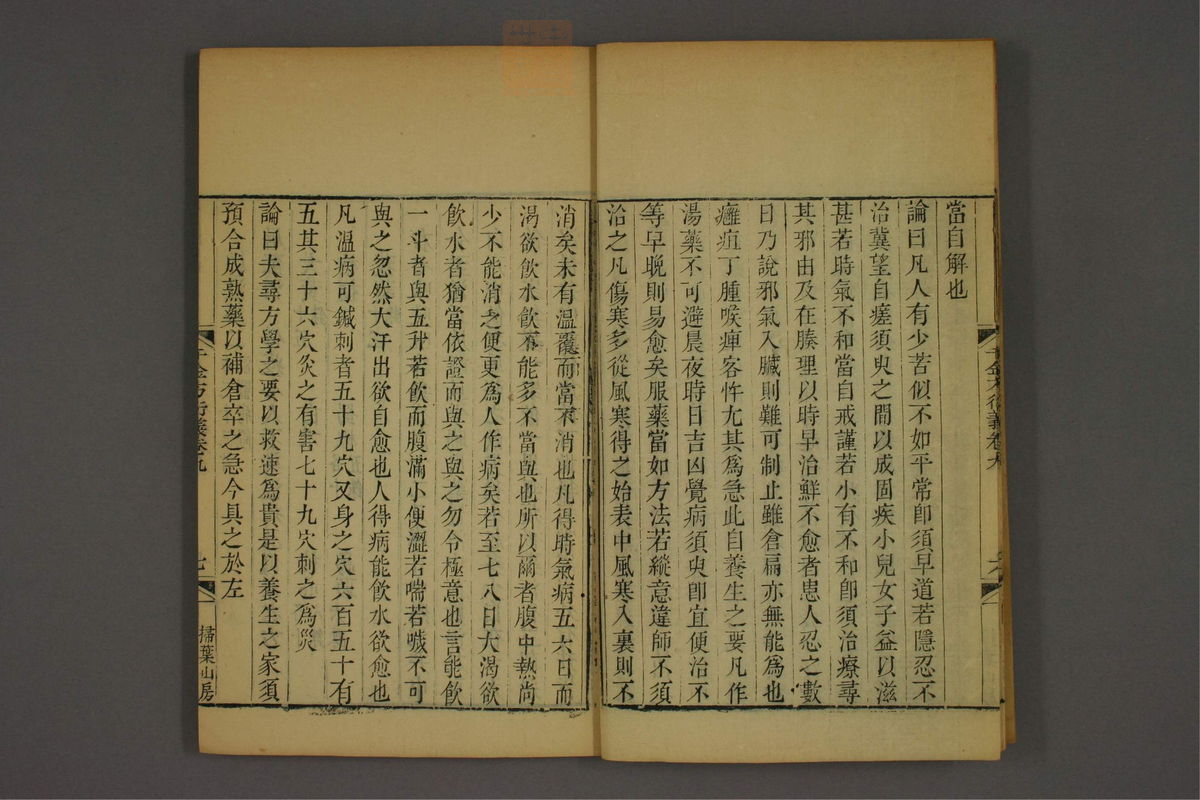 當自解也
論曰凡人有少苦似不如平常卽須早道若隱忍不
治冀望自瘥須臾之間以成固疾小兒女子益以滋
甚若時氣不和當自戒謹若小有不和卽須治療尋
其邪由及在腠理以時早治鮮不愈者患人忍之數
日乃說邪氣入臟則難可制止雖倉扁亦無能爲也
癰疽丁腫喉痺客忤尤其爲急此自養生之要凡作
湯藥不可避晨夜時日吉凶覺病須臾卽宜便治不
等早晚則易愈矣服藥當如方法若縱意違師不須
治之凡傷寒多從風寒得之始表中風寒入裏則不
消矣未有溫覆而當不消也凡得時氣病五六日而
渴欲飲水飲不能多不當與也所以爾者腹中熱尚
少不能消之便更爲人作病矣若至七八日大渴欲
飲水者猶當依證而與之與之勿令極意也言能飲
一斗者與五升若飲而腹滿小便澀若喘若噦不可
與之忽然大汗出欲自愈也人得病能飲水欲愈也
凡溫病可鍼刺者五十九穴又身之穴六百五十有
五其三十六穴灸之有害七十九穴刺之爲災
論曰夫尋方學之要以救速爲貴是以養生之家須
預合成熟藥以補倉卒之急今具之於左
千金方衍義卷九
七
掃葉山房